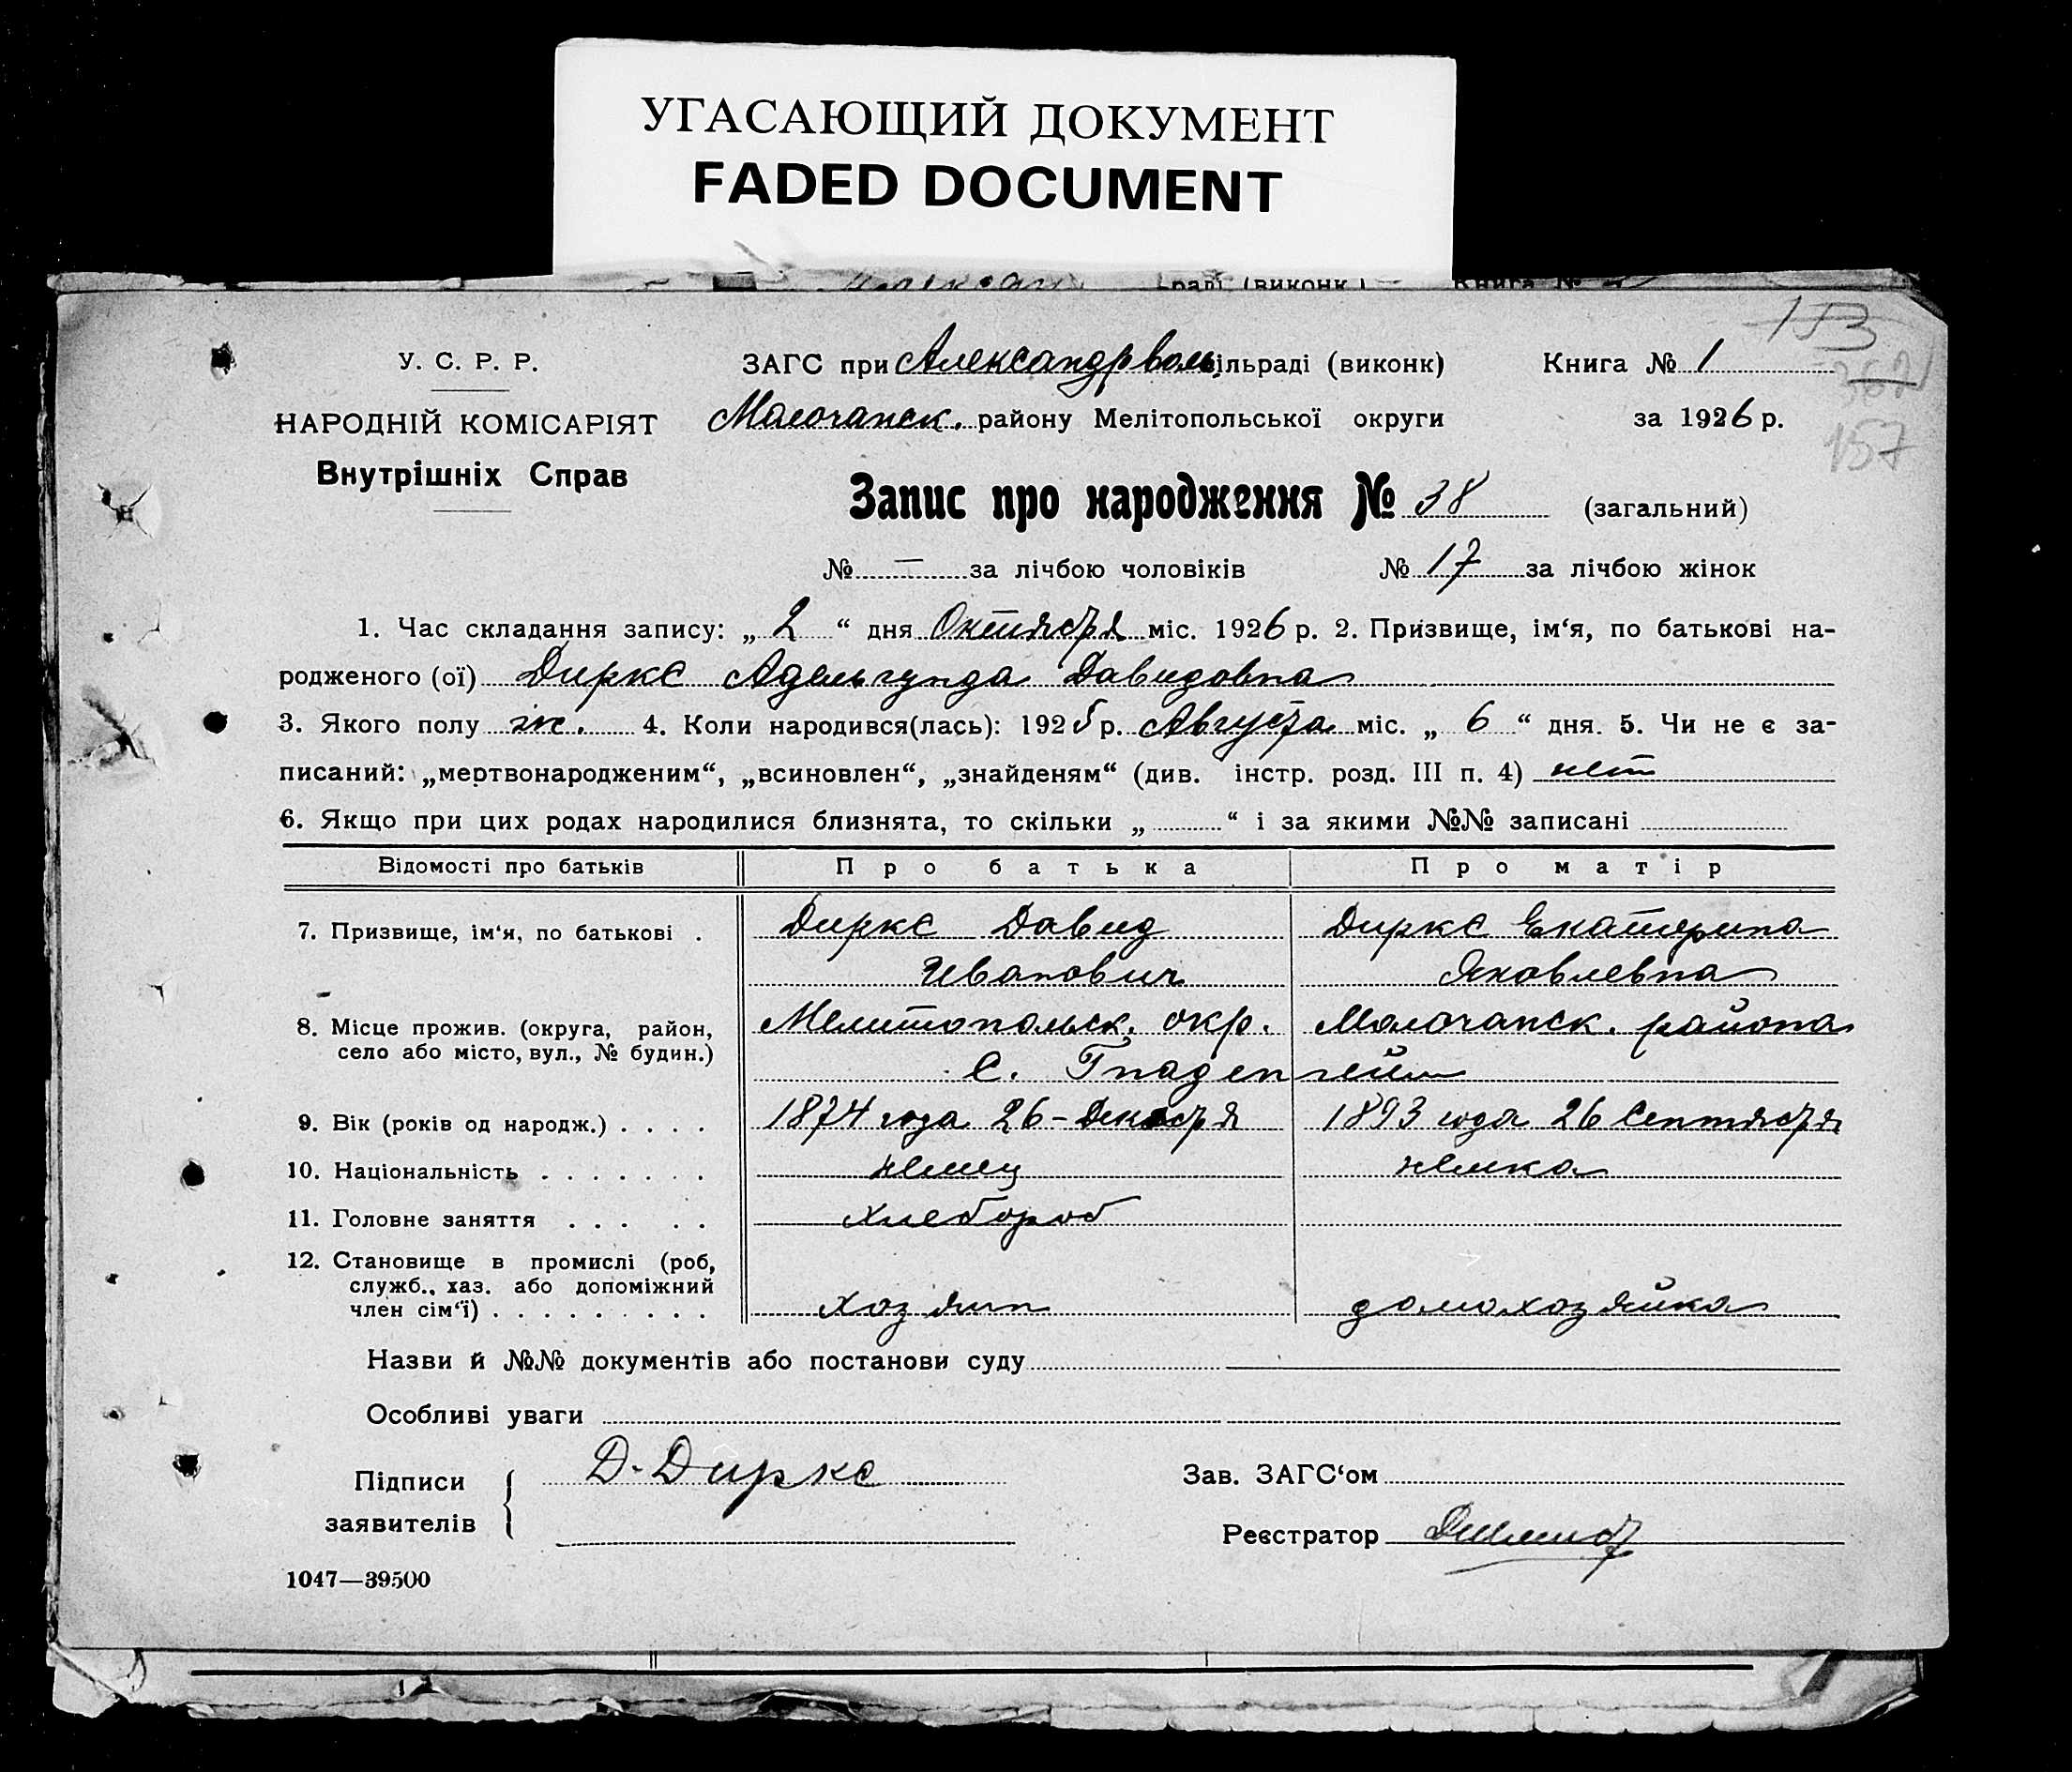 УГАСАЮЩИЙ ДОКУМЕНТ
FADED DOCUMENT
раді (виконк.) Книга №
153
362
157
У. С. Р. Р.
НАРОДНІЙ КОМІСАРІЯТ
Внутрішніх Справ
ЗАГС при Александрвольс. сільраді (виконк) Книга № 1
Молочанск. району Мелітопольської округи за 1926 р.
Запис про народження № 38 (загальний)
№ — за лічбою чоловіків № 17 за лічбою жінок
1. Час складання запису: „ 2 “ дня Октября міс. 1926 р. 2. Призвище, ім‘я, по батькові на-
родженого (ої) Диркс Адельгунда Давидовна
3. Якого полу ж. 4. Коли народився(лась): 1925 р. Августа міс. „ 6 “ дня. 5. Чи не є за-
писаний: „мертвонародженим“, „всиновлен“, „знайденям“ (див. інстр. розд. III п. 4) нет
6. Якщо при цих родах народилися близнята, то скільки „ “ і за якими №№ записані
Відомості про батьків Про батька Про матір
7. Призвище, ім‘я, по батькові . Диркс Давид Диркс Екатерина
Иванович Яковлевна
8. Місце прожив. (округа, район, Мелитопольск. окр. Молочанск. района
село або місто, вул., № будин.) с. Гнаденгейм
9. Вік (років од народж.) . . . . 1874 года 26 - Декабря 1893 года 26 Сентября
10. Національність . . . . . . . немец немка
11. Головне заняття . . . . . хлебороб
12. Становище в промислі (роб,
служб., хаз. або допоміжний
член сім‘ї) . . . . . . . . . хозяин домохозяйка
Назви й №№ документів або постанови суду
Особливі уваги
Підписи
заявителів
Д. Диркс
Зав. ЗАГС‘ом
Реєстратор
1047—39500